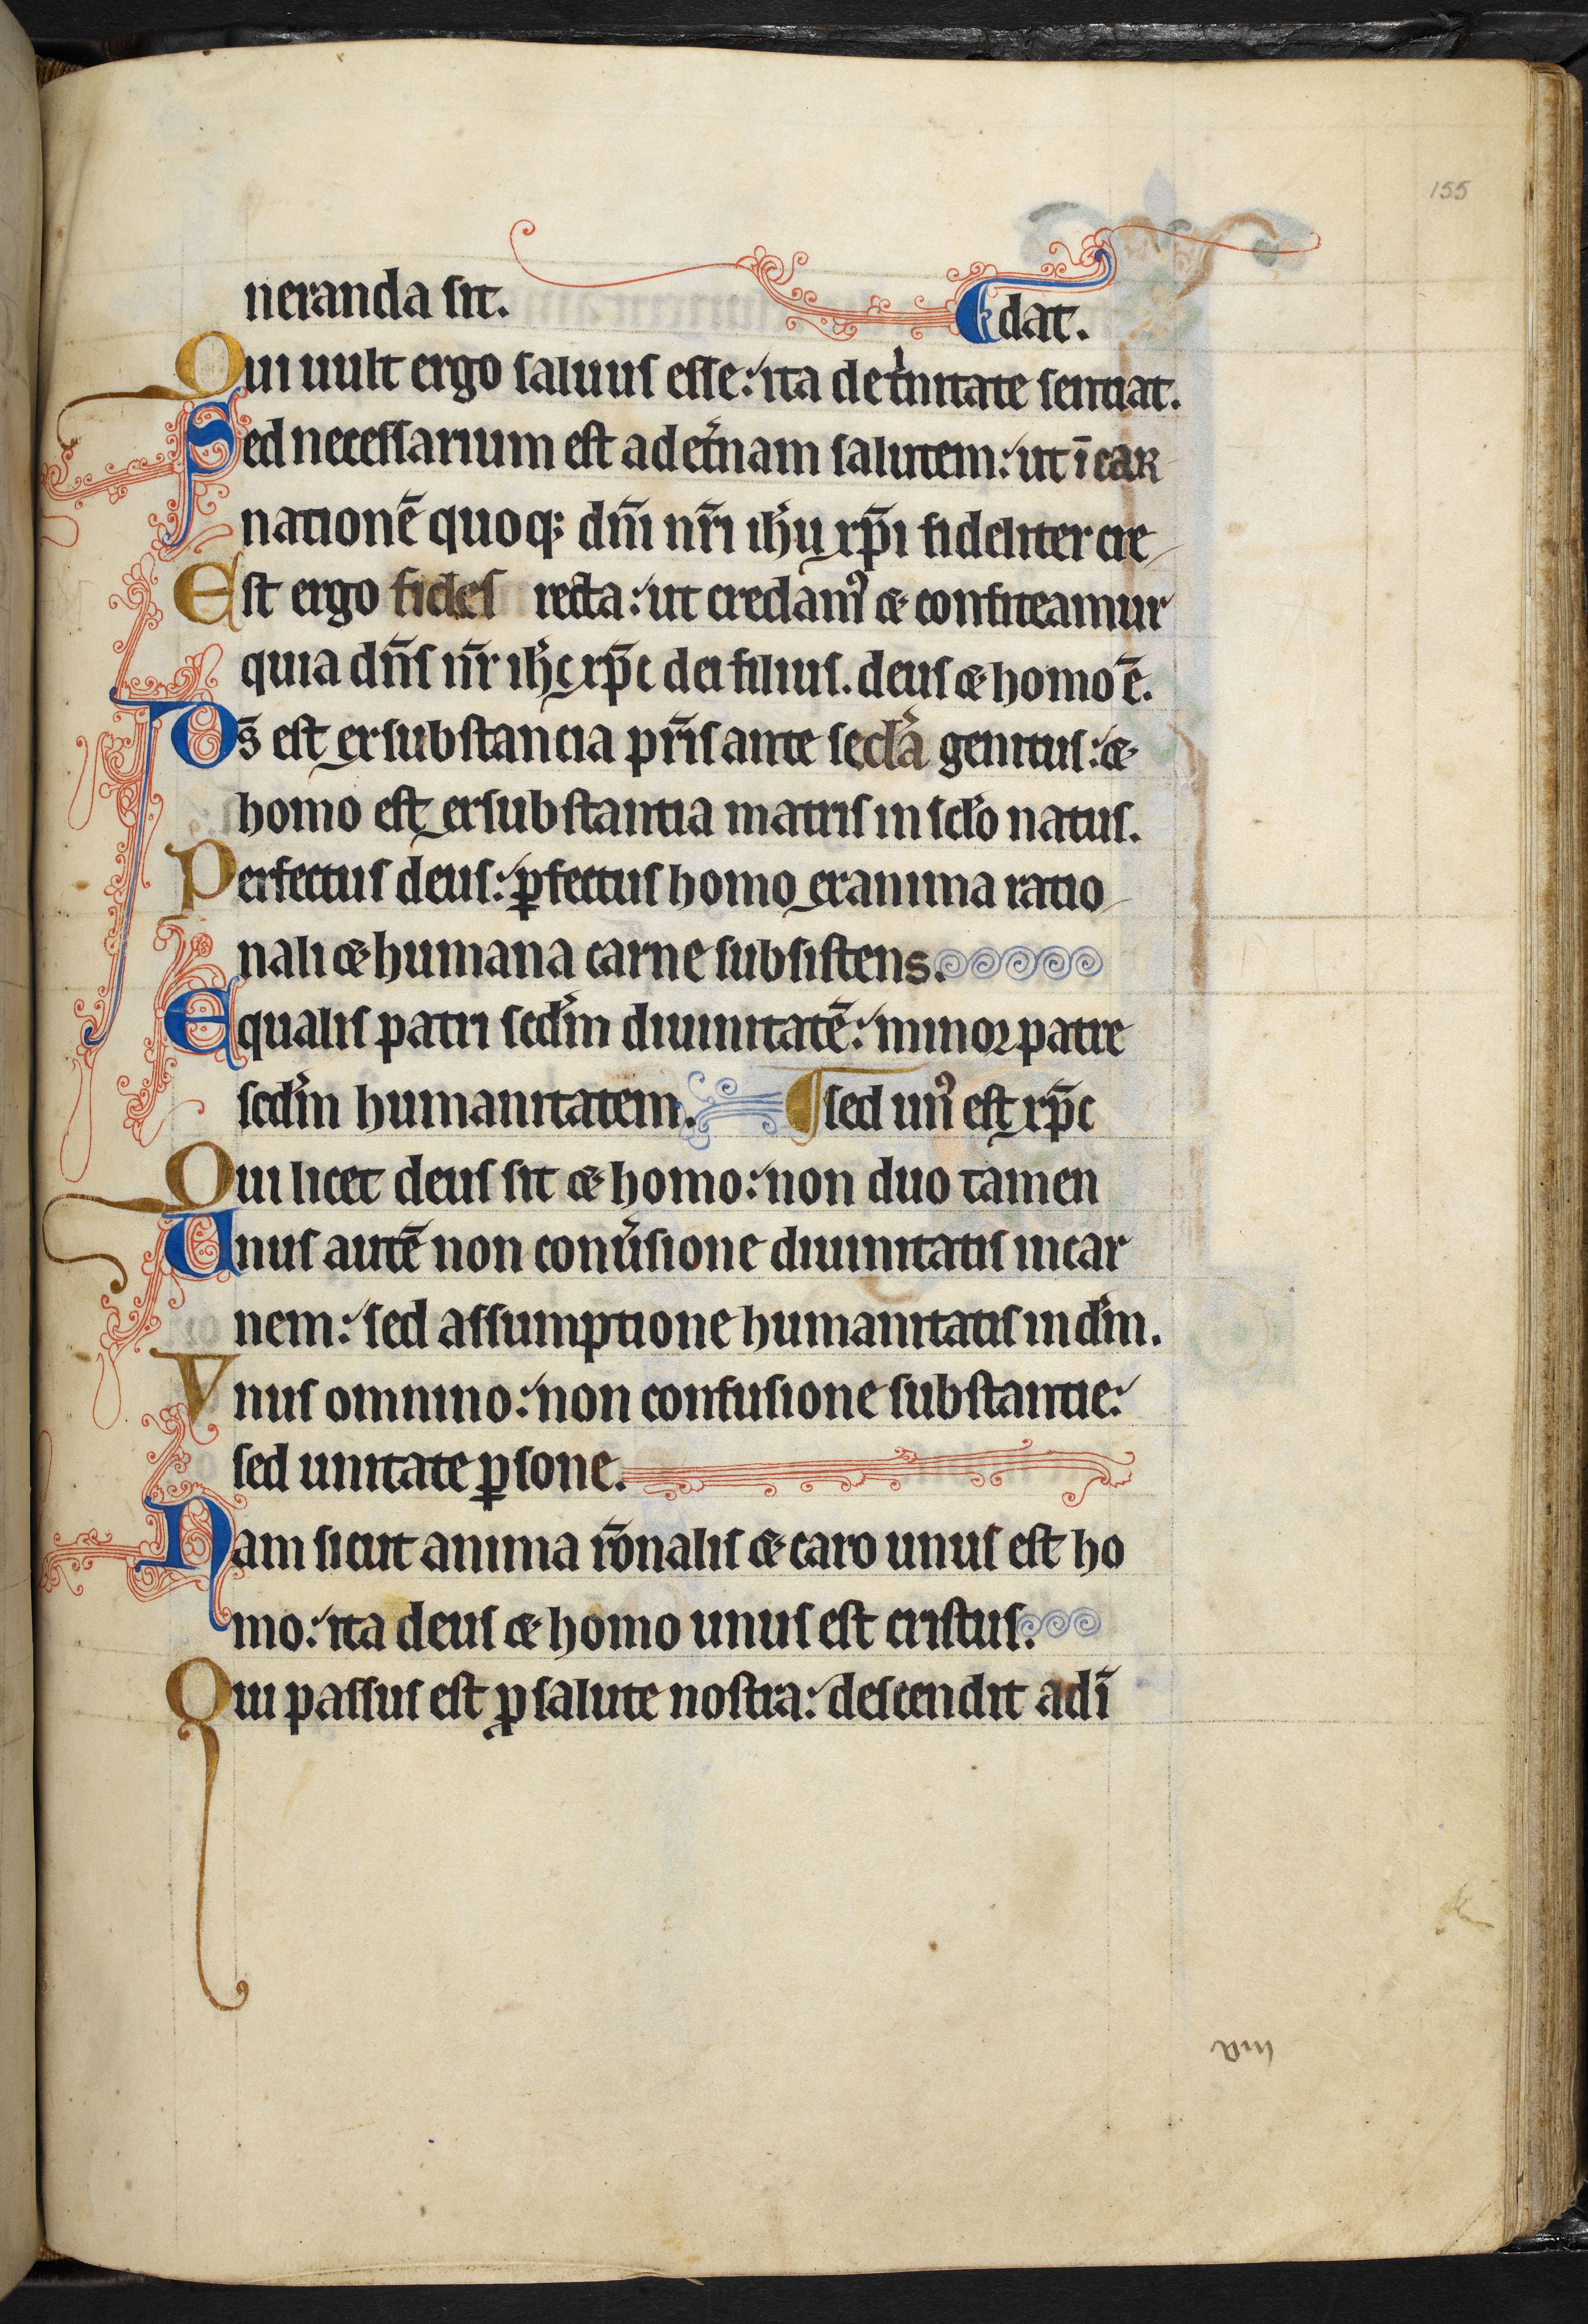 155
neranda sit. dat.
Qui uult ergo saluus esse: ita de t'nitate sentiat.
Sed necessarium est ad et'nam salutem: ut ī car
nationē quoq; dn̄i nr̄i ih'u xp̄i fideliter cre
Est ergo fides recta: ut credam' & confiteamur
quia dn̄s nr̄ ih'c xp̄c dei filius. deus & homo ē.
Ds̄ est ex substancia pr̄is ante secl'a genitus: &
homo est ex substantia matris in sclo natus.
Perfectus deus: ꝑfectus homo ex anima ratio
nali & humana carne subsistens.
Equalis patri scd'm diuinitatē: minor patre
scd'm humanitatem. ¶ sed un' est xp̄c
Qui licet deus sit & homo: non duo tamen
Unus autē non conu'sione diuinitatis in car
nem: sed assumptione humanitatis in d'm.
Vnus omnino: non confusione substantie:
sed unitate ꝑsone.
Nam sicut anima r̄onalis & caro unus est ho
mo: ita deus & homo unus est cristus.
Qui passus est ꝓ salute nostra: descendit ad ī